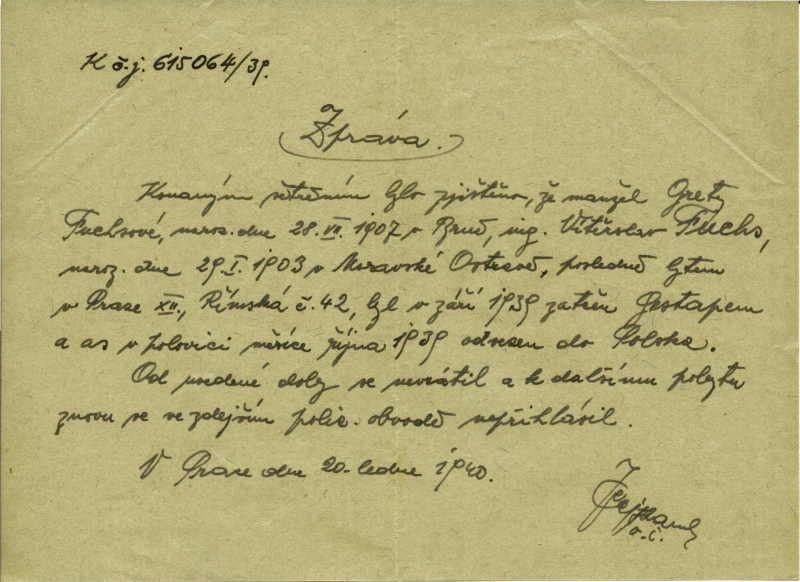 K č.j. 615064/39.
Zpráva.
Konaným šetřením bylo zjištěno, že manžel Grety
Fuchsové, naroz. dne 28.VII.1907 v Brně, ing. Vítězslav Fuchs,
naroz. dne 29.I.1903 v Moravské Ostravě, posledně bytem
v Praze XII., Římská č.42, byl v září 1939 zatčen Gestapem
a as v polovici měsíce října 1939 odvezen do Polska.
Od uvedené doby se nevrátil a k dalšímu pobytu
znovu se ve zdejším polic. obvodě nepřihlásil.
V Praze dne 20. ledna 1940.